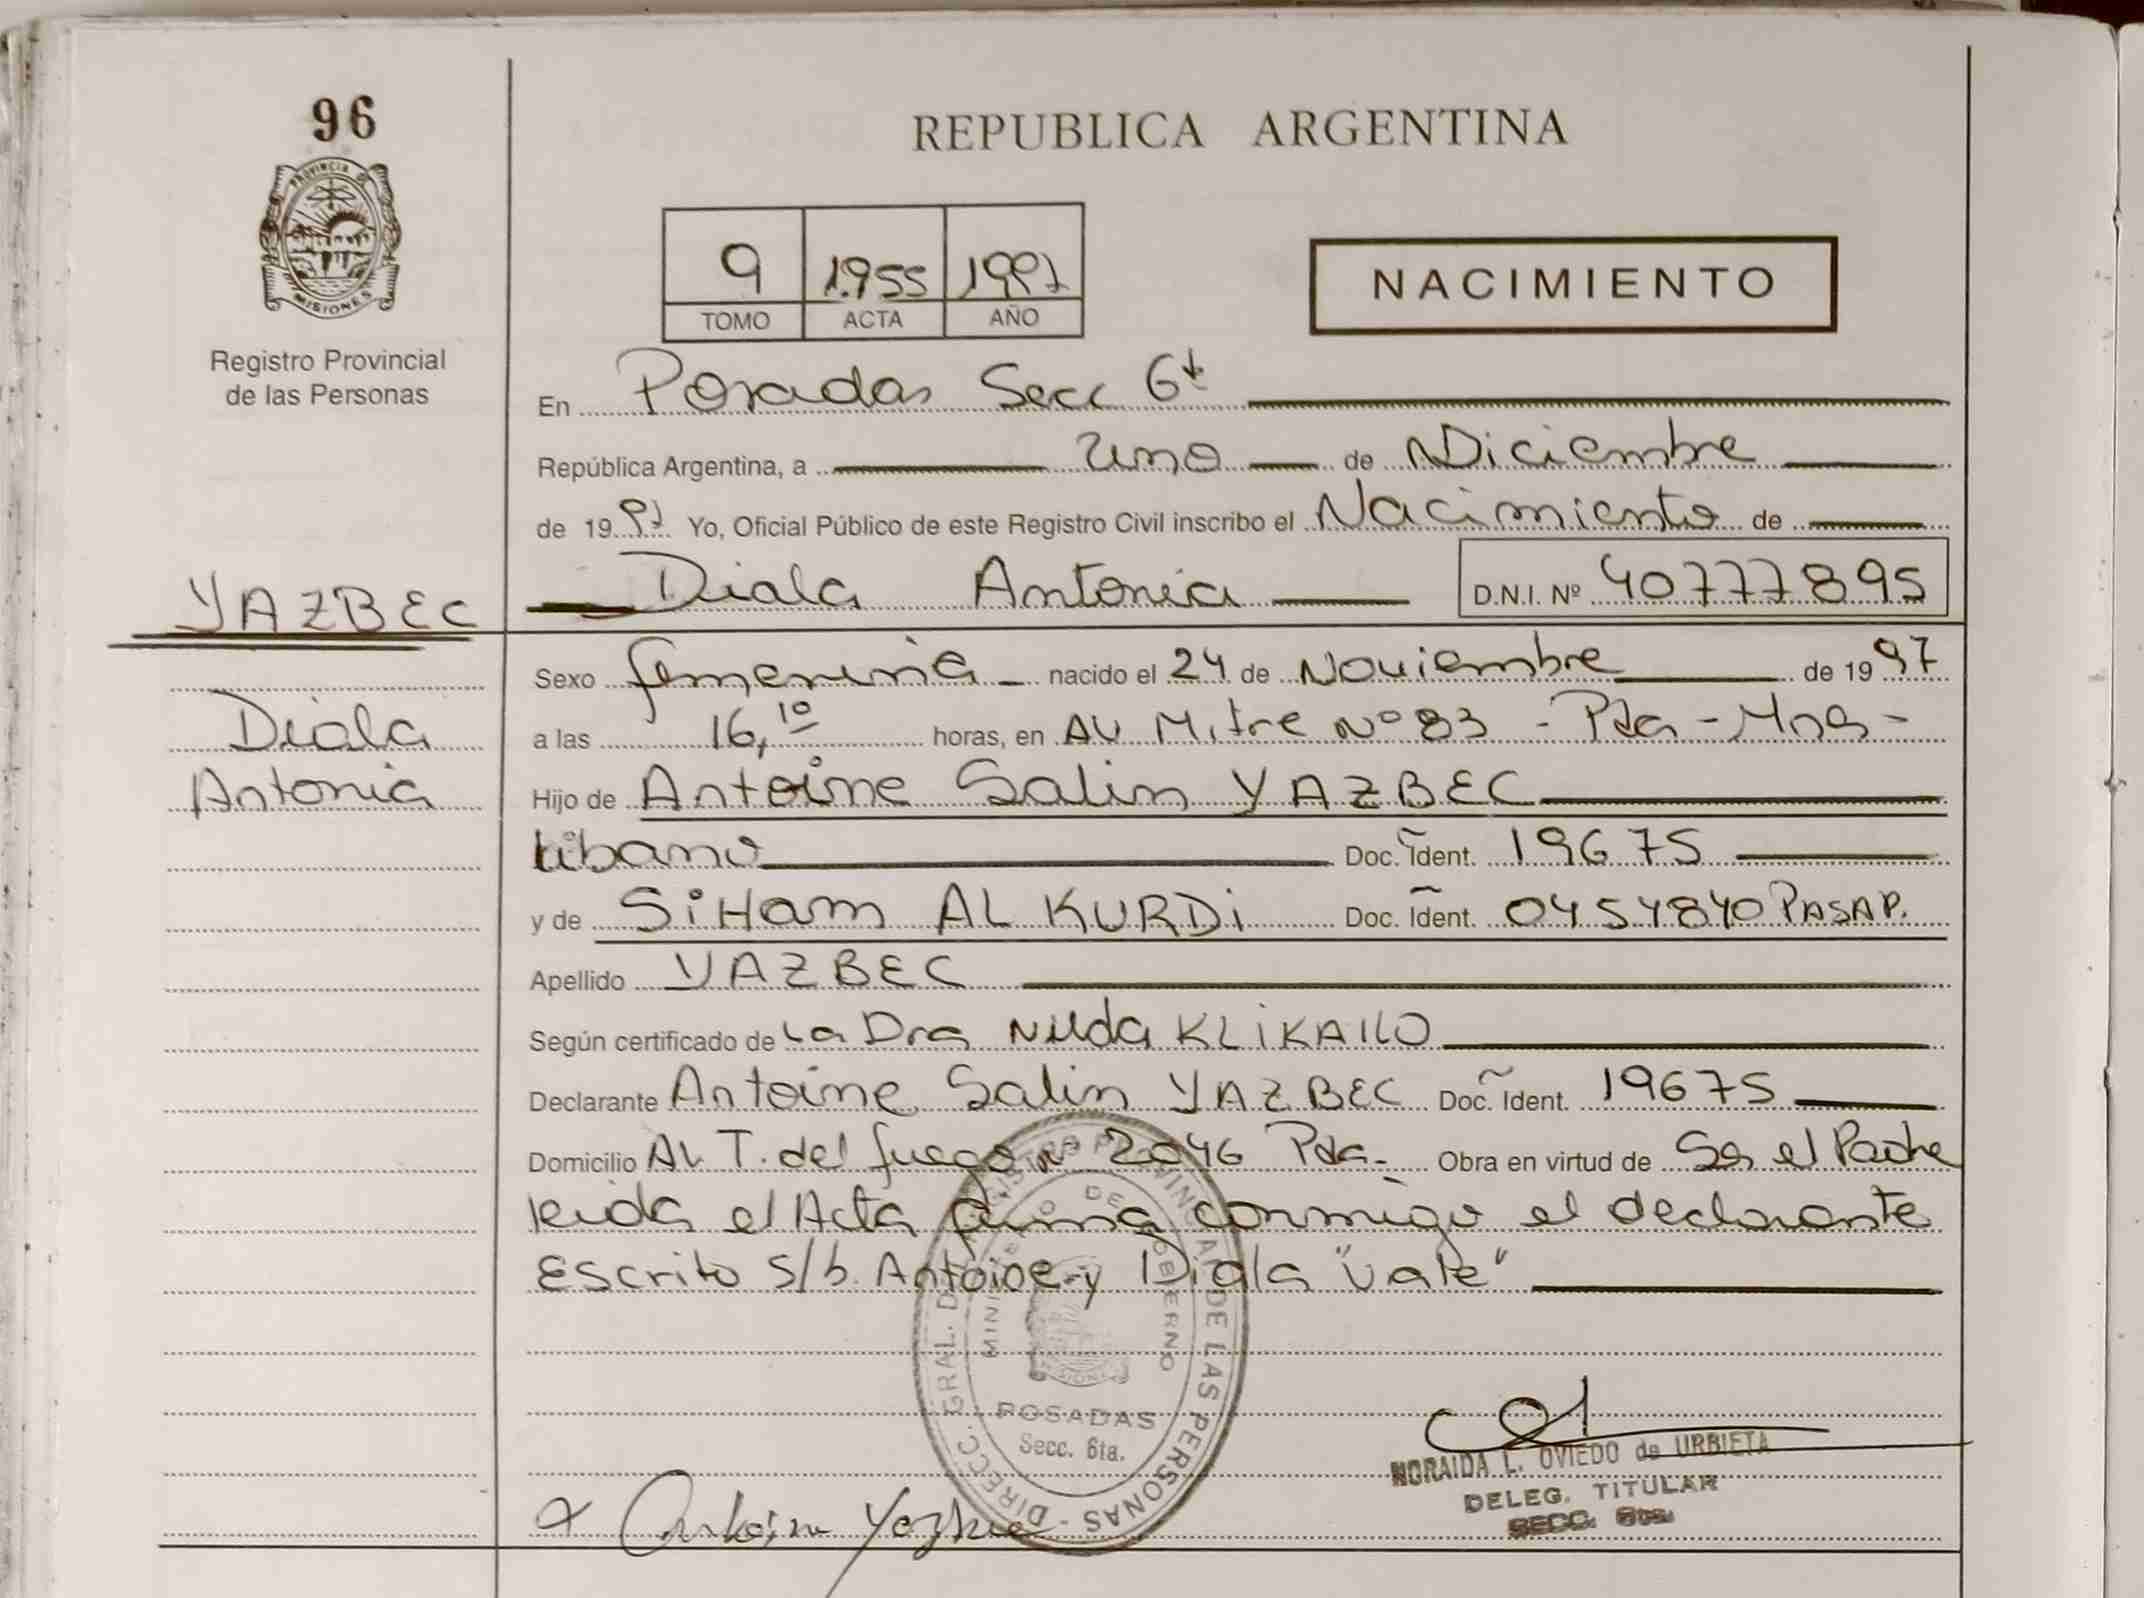 96
PROVINCIA DE
MISIONES
Registro Provincial
de las Personas
REPUBLICA ARGENTINA
9 1.955 1997
TOMO ACTA AÑO
NACIMIENTO
En Posadas Secc 6ta
República Argentina, a uno de Diciembre
de 1997 Yo, Oficial Público de este Registro Civil inscribo el Nacimiento de
YAZBEC
Diala Antonia D.N.I. Nº 40777895
Sexo femenina nacido el 24 de Noviembre de 1997
Diala
a las 16,10 horas, en AV Mitre Nº 83 - Pda - Mns -
Antonia
Hijo de Antoine Salin YAZBEC
Libano Doc. Ident. 19675
y de SiHam AL KURDi Doc. Ident. 0454840 PASAP.
Apellido YAZBEC
Según certificado de La Dra Nilda KLiKAILO
Declarante Antoine Salin YAZBEC Doc. Ident. 19675
Domicilio AV. T. del fuego n 2046 Pda. Obra en virtud de Ser el Padre
leida el Acta firma conmigo el declarante
Escrito s/b. Antoine y Diala "vale"
DIRECC. GRAL. DEL REGISTRO PROVINCIAL DE LAS PERSONAS -
MINISTERIO DE GOBIERNO
MISIONES
POSADAS
Secc. 6ta.
NORAIDA L. OVIEDO de URBIETA
DELEG. TITULAR
SECC. 6ta.
Antoine Yazbec